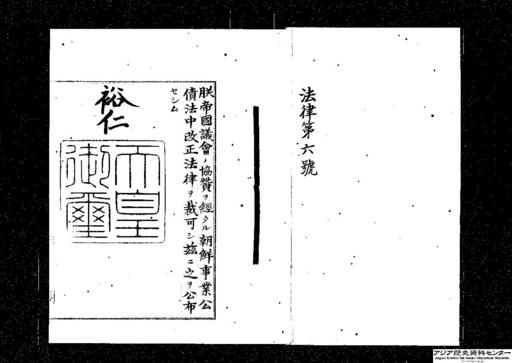 法律第六號
朕帝國議會ノ協贊ヲ經タル朝鮮事業公
債法中改正法律ヲ裁可シ茲ニ之ヲ公布
セシム
裕仁
天皇
御璽
アジア歴史資料センター
Japan Center for Asian Historical Records